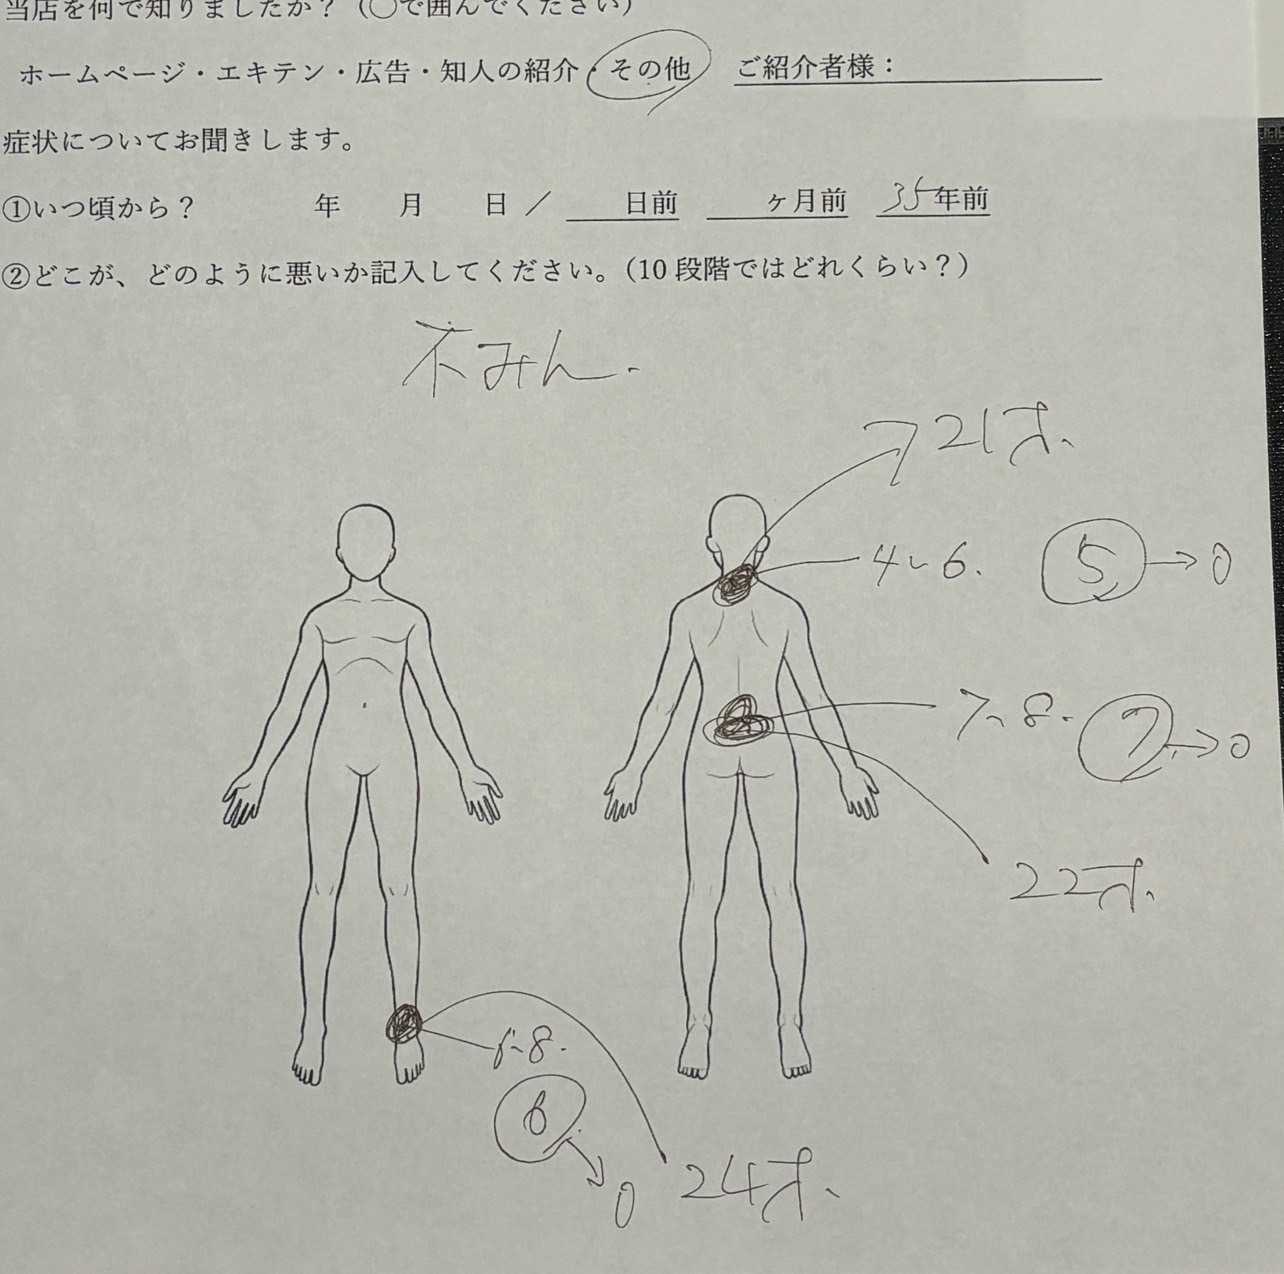 当店を何で知りましたか？（○で囲んでください）
ホームページ・エキテン・広告・知人の紹介・その他 ご紹介者様：
症状についてお聞きします。
①いつ頃から？ 年 月 日 ／ 日前 ヶ月前 35年前
②どこが、どのように悪いか記入してください。（10段階ではどれくらい？）
不みん.
21才、
4〜6. 5 → 0
7、8. 7 → 0
22才、
8.
6 → 0
24才、